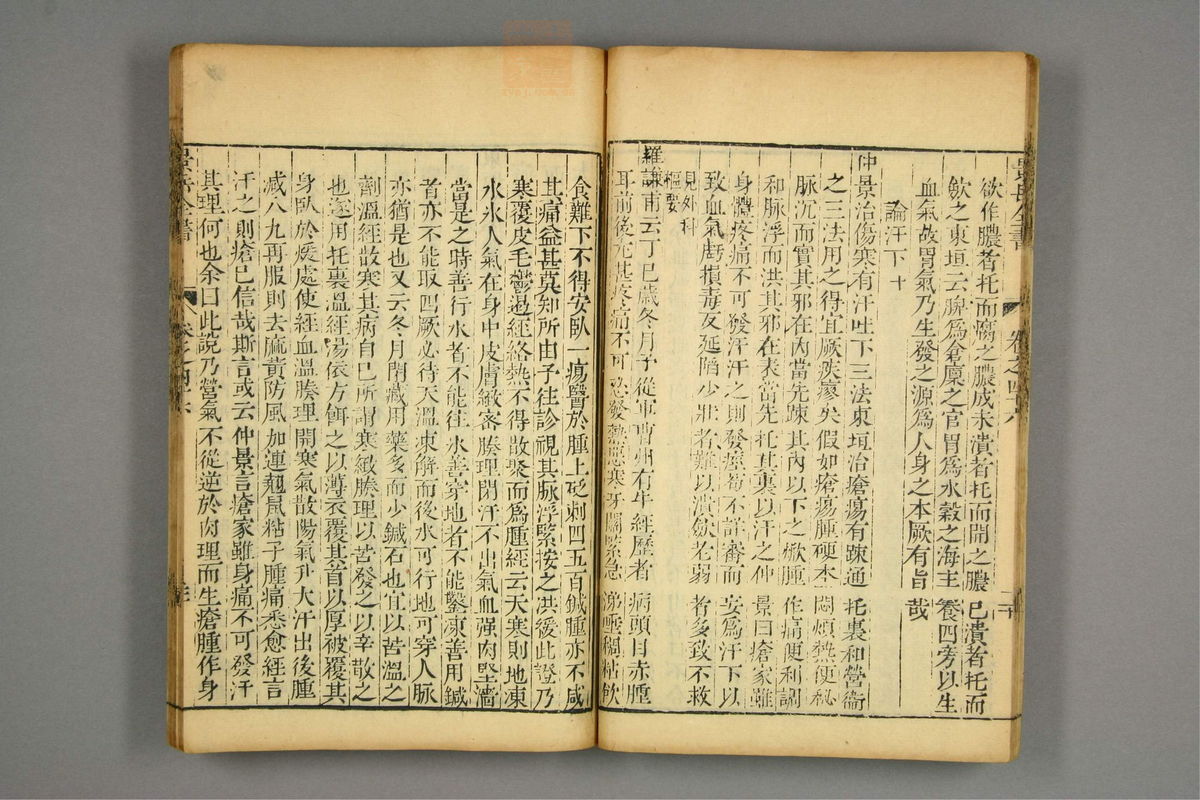 欲作膿者托而腐之膿成未潰者托而開之膿已潰者托而
斂之東垣云脾為倉廩之官胃為水穀之海主養四旁以生
血氣故胃氣乃生發之源為人身之本厥有旨哉
論汗下 十
仲景治傷寒有汗吐下三法東垣治瘡瘍有疎通托裏和營衞
之三法用之得宜厥疾瘳矣假如瘡瘍腫硬木悶煩熱便秘
脉沉而實其邪在內當先疎其內以下之焮腫作痛便利調
和脉浮而洪其邪在表當先托其裏以汗之仲景曰瘡家雖
身體疼痛不可發汗汗之則發痙苟不詳審而妄為汗下以
致血氣虧損毒反延陷少壯者難以潰斂老弱者多致不救
見外科
樞要
羅謙甫云丁巳歲冬月予從軍曹州有年經歷者病頭目赤腫
耳前後尤甚疼痛不可忍發熱惡寒牙關緊急涕唾稠粘飲
食難下不得安臥一瘍醫於腫上砭刺四五百鍼腫亦不減
其痛益甚莫知所由予往診視其脉浮緊按之洪緩此證乃
寒覆皮毛鬱遏經絡熱不得散聚而為腫經云天寒則地凍
水氷人氣在身中皮膚緻密腠理閉汗不出氣血强肉堅濇
當是之時善行水者不能往氷善穿地者不能鑿凍善用鍼
者亦不能取四厥必待天溫凍解而後水可行地可穿人脉
亦猶是也又云冬月閉藏用藥多而少鍼石也宜以苦溫之
劑溫經散寒其病自已所謂寒緻腠理以苦發之以辛散之
也遂用托裏溫經湯依方餌之以薄衣覆其首以厚被覆其
身臥於煖處使經血溫腠理開寒氣散陽氣升大汗出後腫
減八九再服則去麻黃防風加連翹鼠粘子腫痛悉愈經言
汗之則瘡已信哉斯言或云仲景言瘡家雖身痛不可發汗
其理何也余曰此說乃營氣不從逆於肉理而生瘡腫作身